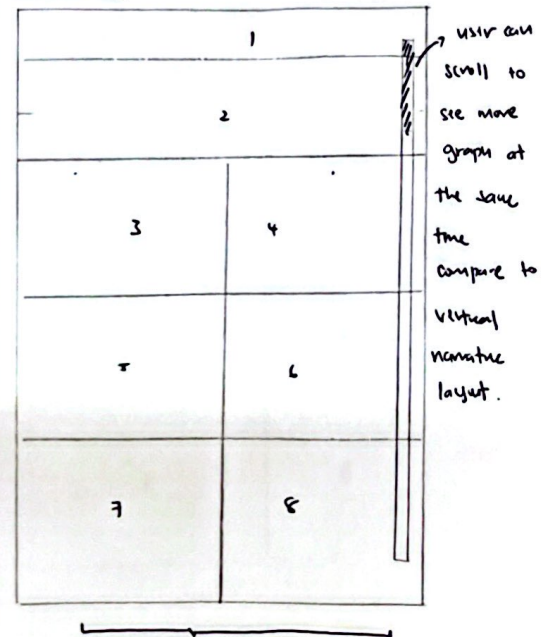 1
2
3 4
5 6
7 8
user can
scroll to
see more
graph at
the same
time
compare to
vertical
narrative
layout.